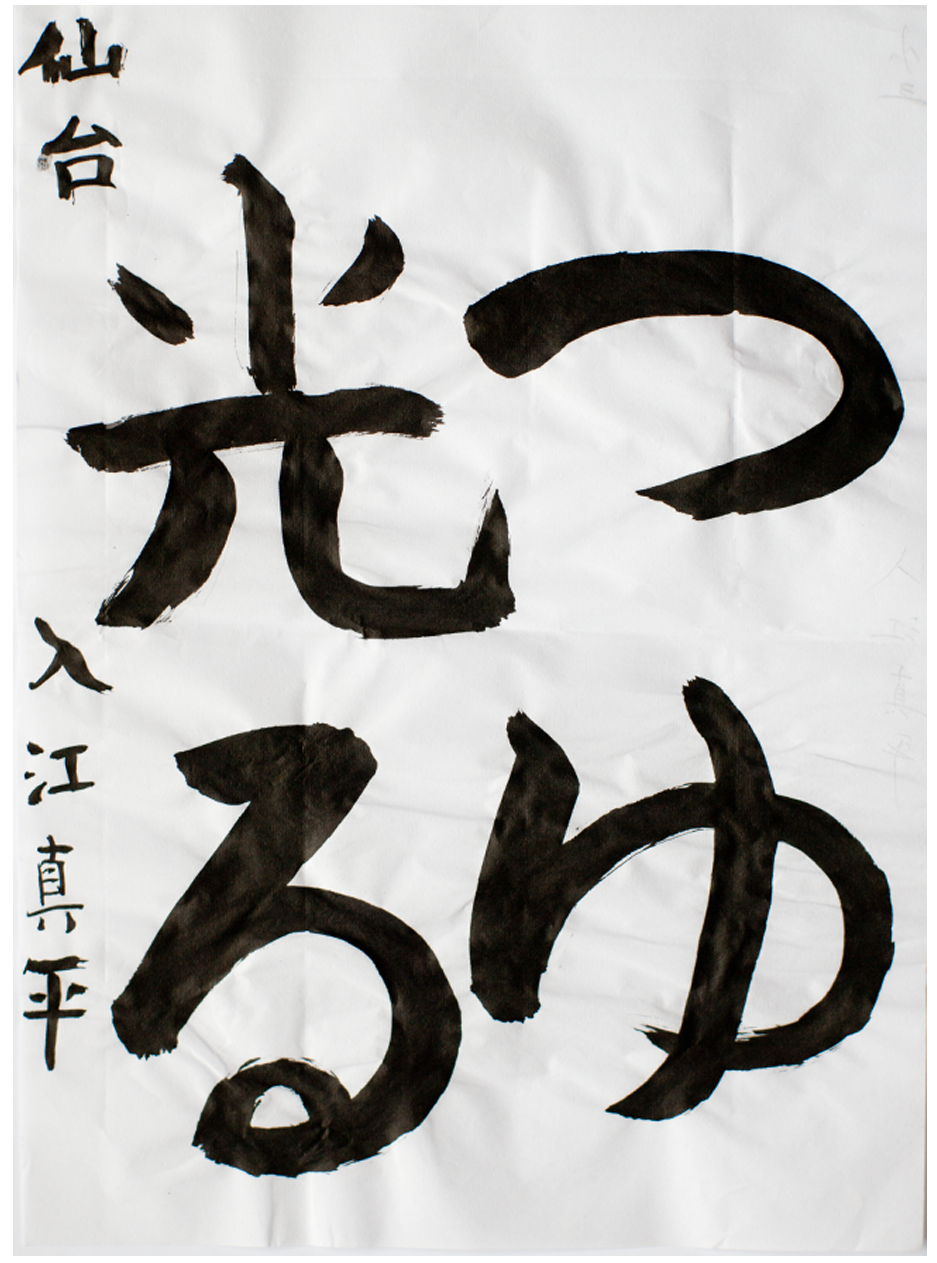 つゆ
光る
仙台 入江真平